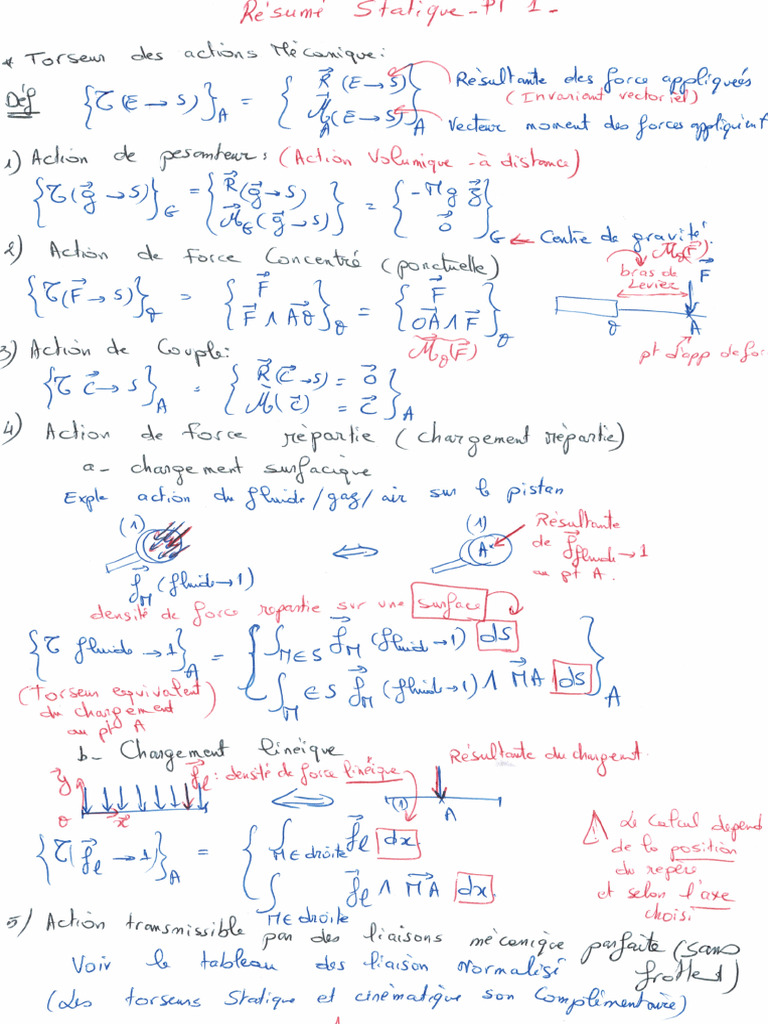 Résumé Statique - Pt 1 -
* Torseur des actions Mécanique :
Déf {𝒯(E → S)}_A = { R⃗ (E → S) ; M⃗_A (E → S) }_A
Résultante des force appliquées
(Invariant vectoriel)
Vecteur moment des forces appliquient
1) Action de pesanteur : (Action Volumique - à distance)
{𝒯(g⃗ → S)}_G = { R⃗(g⃗ → S) ; M⃗_G(g⃗ → S) } = { -Mg z⃗ ; 0⃗ }_G ← Centre de gravité
2) Action de Force Concentré (ponctuelle)
M⃗_0(F⃗)
bras de
Levier
F⃗
{𝒯(F⃗ → S)}_0 = { F⃗ ; F⃗ ∧ A0⃗ }_0 = { F⃗ ; OA⃗ ∧ F⃗ }_0
M⃗_0(F⃗)
0 A
pt d'app de for
3) Action de Couple :
{𝒯 C⃗ → S}_A = { R⃗(C⃗ → S) = 0⃗ ; M⃗(C⃗) = C⃗ }_A
4) Action de force répartie (chargement répartie)
a - chargement surfacique
Exple action du fluide/gaz/air sur le pistan
(1) ⇔ (1) A
Résultante
de f⃗ fluide → 1
au pt A.
f⃗_M (fluide → 1)
densité de force repartie sur une surface
{𝒯 fluide → 1}_A = { ∫_M∈S f⃗_M (fluide → 1) ds ; ∫_M ∈ S f⃗_M (fluide → 1) ∧ MA⃗ ds }_A
(Torseur equivalent
du chargement
au pt A)
b - Chargement linéique
Résultante du chargent
y⃗ f⃗_l : densité de force linéique
0 x⃗ ⇔ (1) A
{𝒯(f⃗_l → 1}_A = { ∫_M∈droite f⃗_l dx ; ∫_M∈droite f⃗_l ∧ MA⃗ dx
⚠ Le Calcul depend
de la position
du repère
et selon l'axe
choisi
5) Action transmissible par des liaisons mécanique parfaite (sans frottent)
Voir le tableau des liaison Normalisé
(Les torseurs Statique et cinématique son Complémentaire)